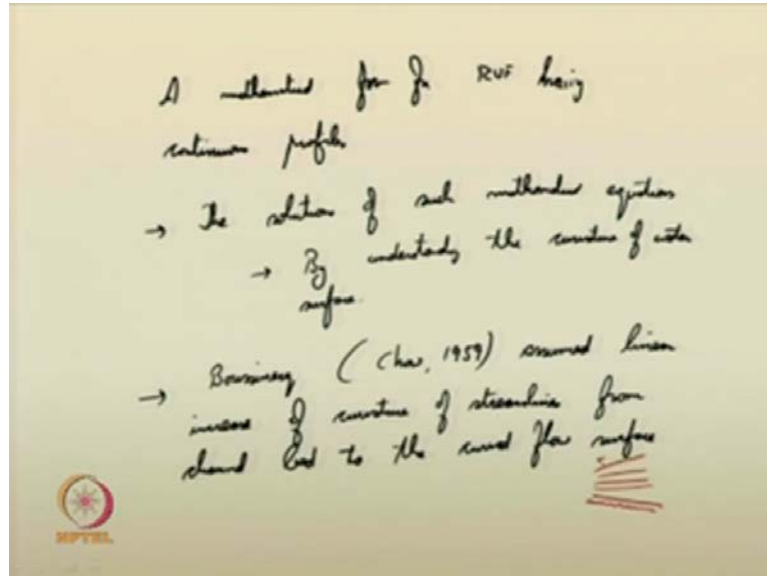 A mathematical form for RVF having
continuous profiles
→ The solution of such mathematical equations
→ By understanding the curvature of water
surface.
→ Boussinesq (Chow, 1959) assumed linear
increase of curvature of streamline from
channel bed to the curved flow surface
NPTEL